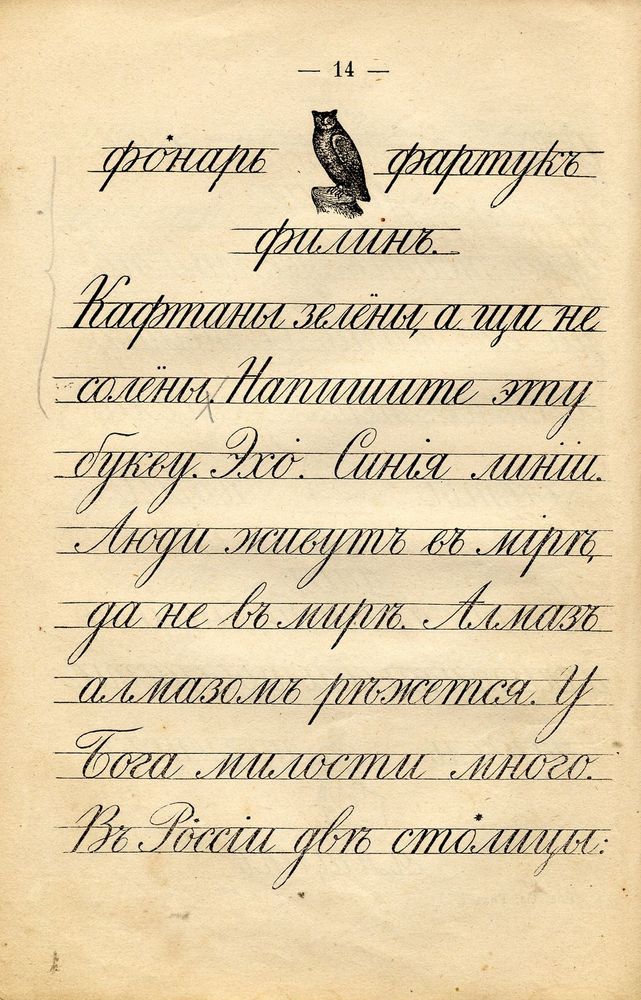 — 14 —
фонарь фартукъ
филинъ.
Кафтаны зелёны, а щи не
солёны. Напишите эту
букву. Эхо. Синія линіи.
Люди живутъ въ мірѣ,
да не въ мирѣ. Алмазъ
алмазомъ рѣжется. У
Бога милости много.
Въ Россіи двѣ столицы: